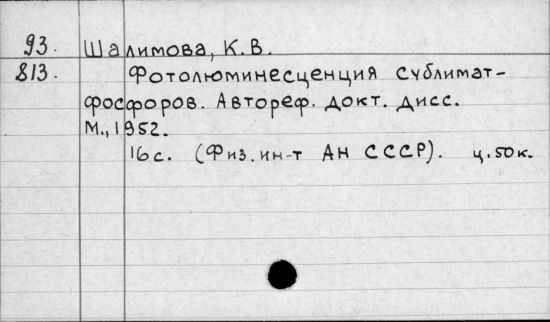 93. Шалимова, К.В.
813. Фотолюминесценция сублимат-
фосфоров. Автореф. докт. дисс.
М., 1952.
16 с. (Физ. ин-т АН СССР). ц. 50 к.